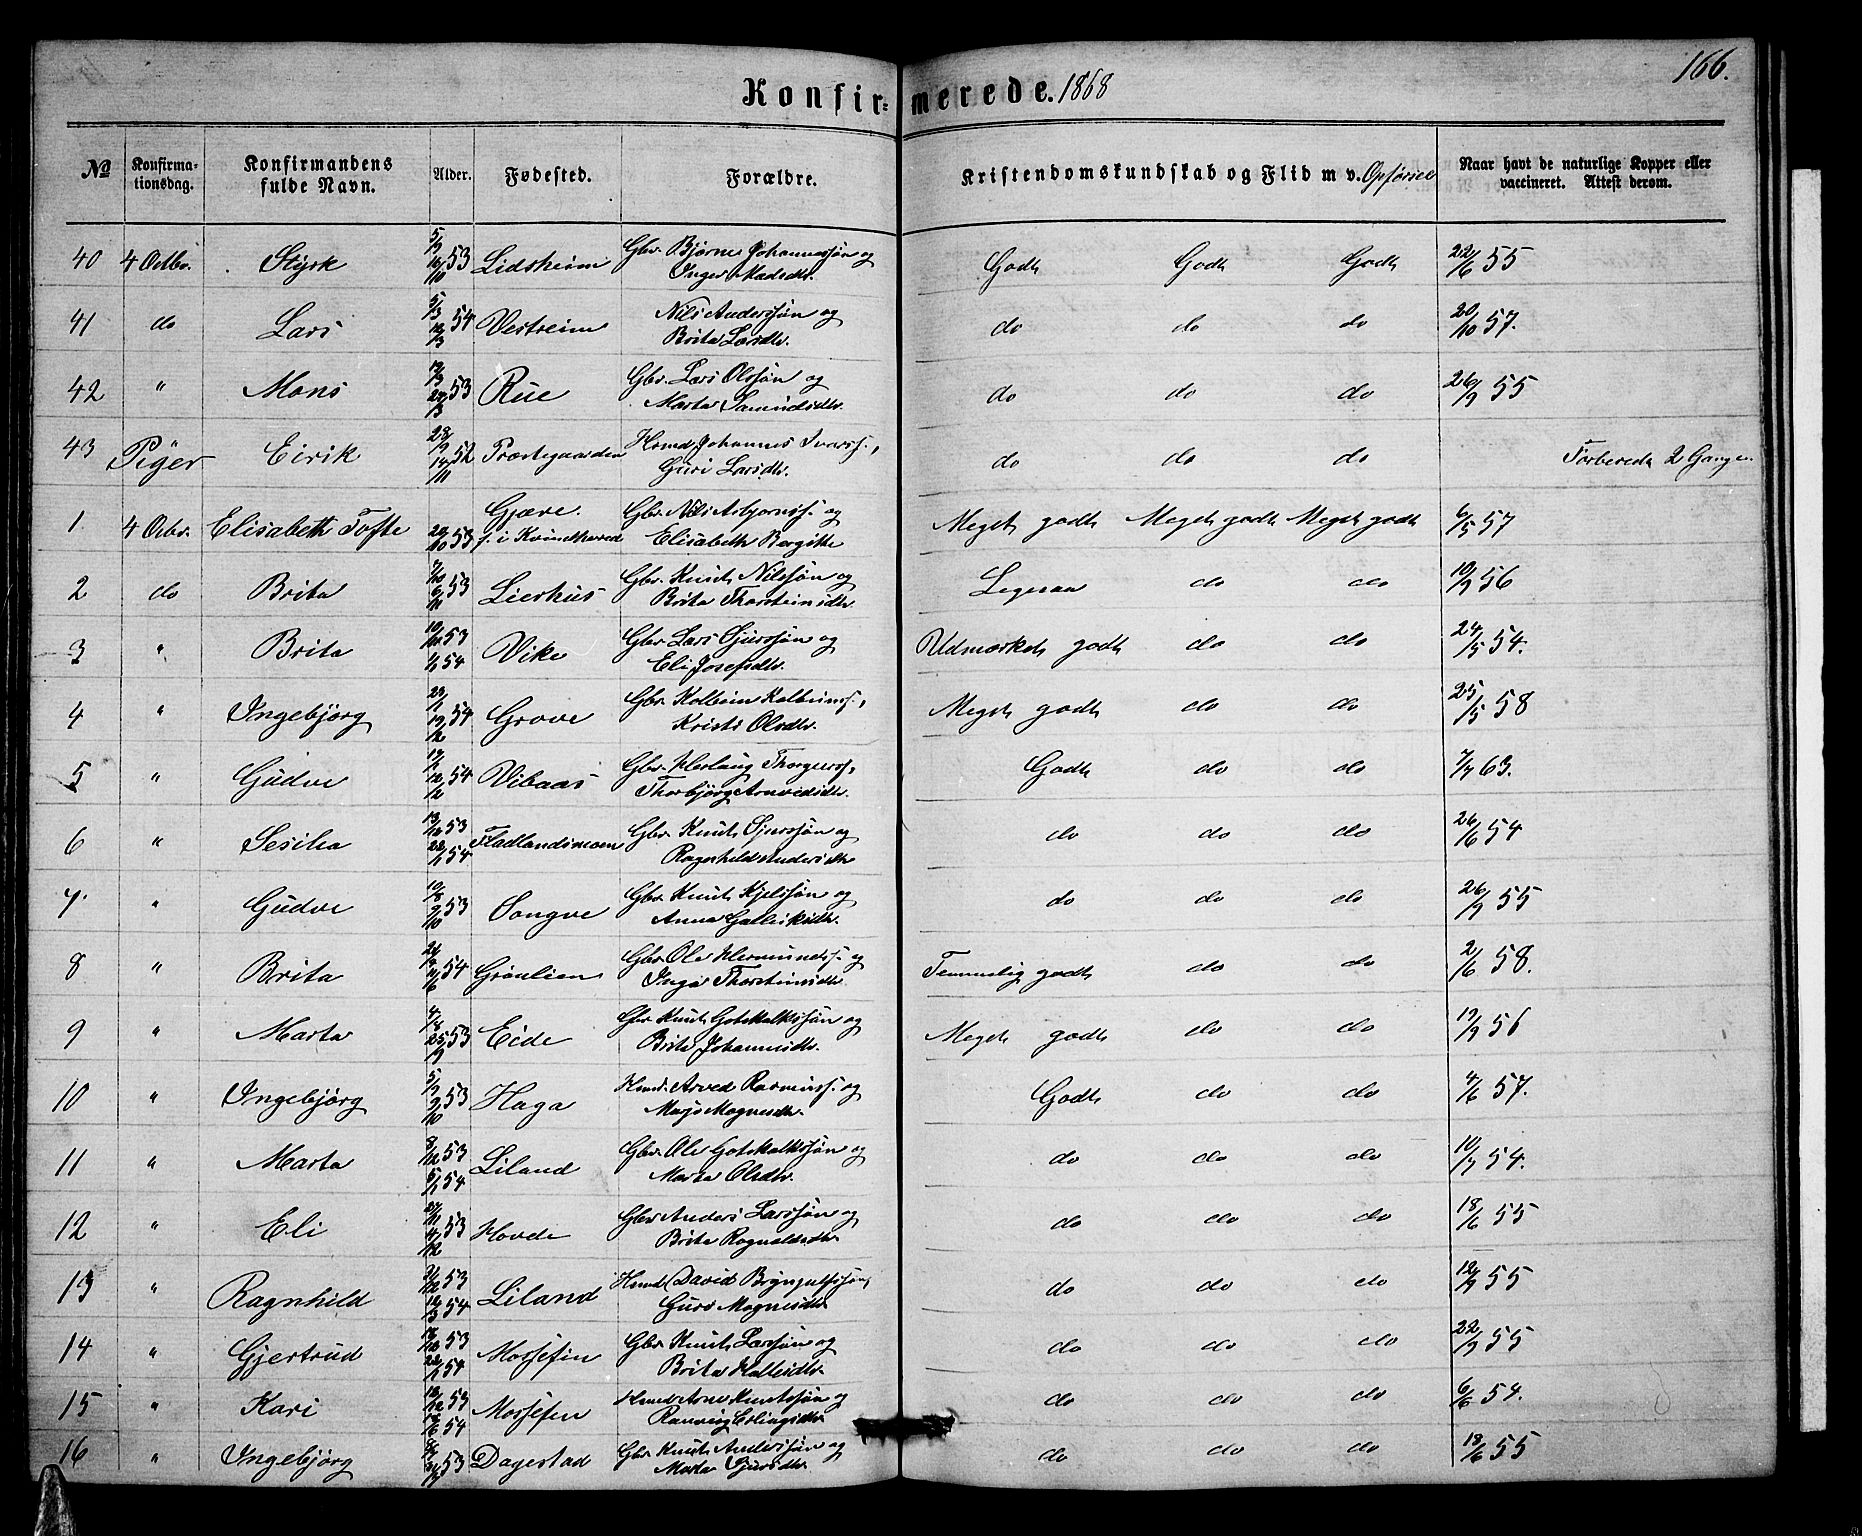 166.
Konfirmerede. 1868
No
Konfirma-
tionsdag.
Konfirmandens
fulde Navn.
Alder.
Fødested.
Forældre.
Kristendomskundskab og Flid m v. Opførsel
Naar havt de naturlige Kopper eller
vaccineret. Attest derom.
40 4 Octbr. Styrk 5/9 16/10 53 Lidsheim Gbr. Bjørne Johannessøn og Godt Godt Godt 22/6 55
Inger Madsdtr.
41 do Lars 5/3 12/3 54 Vestreim Nils Anderssøn og do do do 20/10 57.
Brita Larsdtr.
42 " Mons 53 Rue Gbr. Lars Olssøn og do do do 26/9 55
Marta Samundsdtr.
43 Eirik 28/9 14/11 52 Præstegaarden Hsmd Johannes Iverss., do do do Forberedt 2 Gange.
Guri Larsdtr.
Piger
1 4 Octbr. Elisabeth Tofte 53 Gjære. Gbr. Nils Asbjørnss. og Meget godt Meget godt Meget godt 6/5 57
f. i Kvindherred Elisabeth Bergitte
2 do Brita 6/11 53 Lierhus Gbr. Knut Nilssøn og Legesaa do do 10/9 56
Brita Thorsteinsdtr.
3 " Brita 53 54 Vike Gbr Lars Sjurssøn og Udmærket godt do do 24/5 54.
Eli Josefsdtr.
4 " Ingebjørg 19/2 54 Grove Gbr. Kolbein Kolbeinss., Meget godt do do 25/5 58
Kristi Olsdtr.
5 " Gudve 12/2 54 Vibaas Gbr. Herlaug Thorgeirss, Godt do do 7/7 63.
Thorbjørg Arnvedsdtr.
6 " Sesilia 53 54 Fladlandsmoen Gbr. Knut Sjurssøn og do do do 26/6 54
Ragnhild Andersdtr
7. " Gudve 10/8 9/10 53 Songve Gbr. Knut Kjelssøn og do do do 26/9 55
Anna Gulleiksdtr.
8 " Brita 54 Grønlien Gbr. Ole Hermundss. og Temmelig godt do do 2/6 58.
Inga Thorsteinsdtr.
9 " Marta 25/9 53 Eide Gbr Knut Gotskalkssøn og Meget godt do do 17/9 56
Brita Johannesdtr.
10 " Ingebjørg 5/9 9/10 53 Haga Hsmd. Arved Rasmuss. og Godt do do 4/6 57.
Marjo Magnesdtr.
11 " Marta 8/12 53 5/1 54 Liland Gbr. Ole Gotskalkssøn og do do do 10/7 54.
Marta Olsdtr.
12 " Eli 27/11 4/12 53 Hovde Gbr Anders Larssøn og do do do 18/6 55
Brita Rognaldsdtr.
13 " Ragnhild 53 12/3 54 Liland Hsmd David Brynjulfssøn, do do do 12/9 55
Guro Magnesdtr
14 " Gjertrud 53 54 Mossefin Gbr. Knut Larssøn og do do do 22/9 55
Brita Hallesdtr.
15 " Kari 53 54 Mossefen Hsmd Arne Knutssøn og do do do 6/6 54.
Ranveig Erlingsdtr.
16 " Ingebjørg 53 Dagestad Gbr Knut Anderssøn og do do do 18/6 55
Marta Sjursdtr.